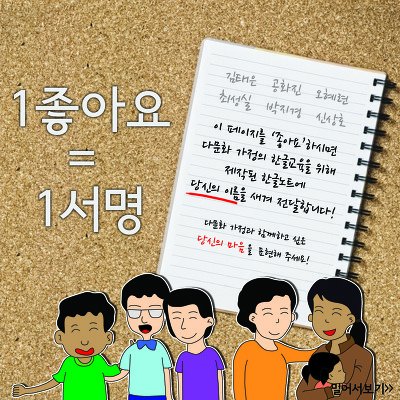 1좋아요
=
1서명
김태운 공화진 오혜련
최성실 박지경 신상호
이 페이지를 '좋아요'하시면
다문화 가정의 한글교육을 위해
제작된 한글노트에
당신의 이름을 새겨 전달합니다!
다문화 가정과 함께하고 싶은
당신의 마음을 표현해 주세요!
밀어서보기>>